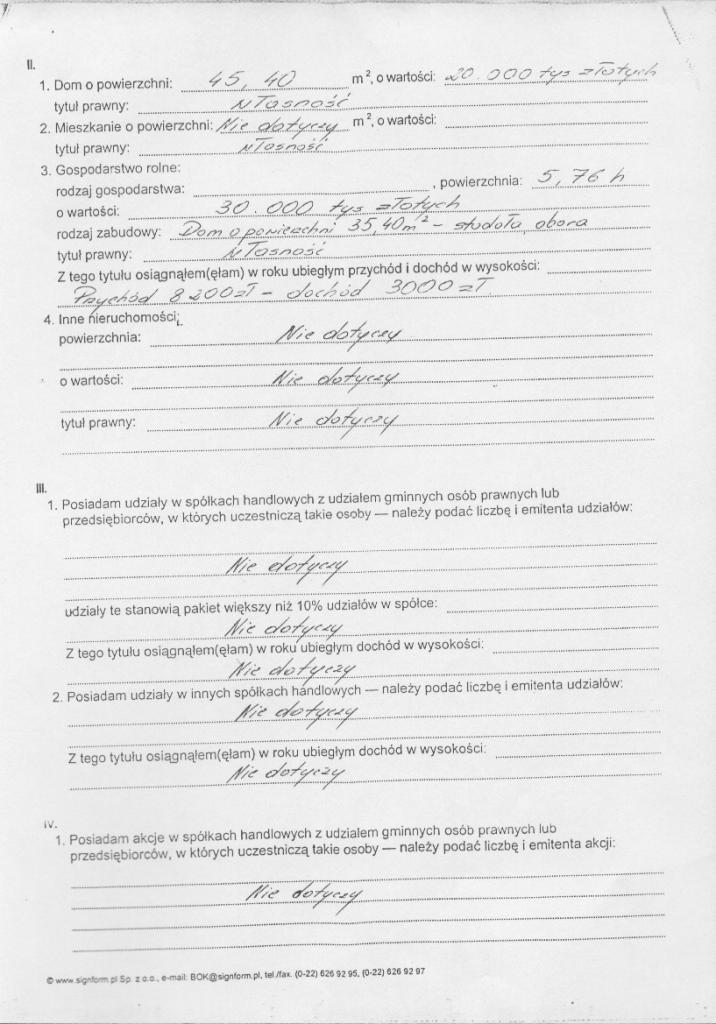 II.
1. Dom o powierzchni: 45, 40 m², o wartości: 20.000 tys złotych
tytuł prawny: własność
2. Mieszkanie o powierzchni: Nie dotyczy m², o wartości:
tytuł prawny: własność
3. Gospodarstwo rolne:
rodzaj gospodarstwa: , powierzchnia: 5,76 h
o wartości: 30.000 tys złotych
rodzaj zabudowy: Dom o powierzchni 35,40 m² - stodoła, obora
tytuł prawny: własność
Z tego tytułu osiągnąłem(ęłam) w roku ubiegłym przychód i dochód w wysokości:
Przychód 8 200 zł - dochód 3000 zł
4. Inne nieruchomości:
powierzchnia: Nie dotyczy
o wartości: Nie dotyczy
tytuł prawny: Nie dotyczy
III.
1. Posiadam udziały w spółkach handlowych z udziałem gminnych osób prawnych lub
przedsiębiorców, w których uczestniczą takie osoby — należy podać liczbę i emitenta udziałów:
Nie dotyczy
udziały te stanowią pakiet większy niż 10% udziałów w spółce:
Nie dotyczy
Z tego tytułu osiągnąłem(ęłam) w roku ubiegłym dochód w wysokości:
Nie dotyczy
2. Posiadam udziały w innych spółkach handlowych — należy podać liczbę i emitenta udziałów:
Nie dotyczy
Z tego tytułu osiągnąłem(ęłam) w roku ubiegłym dochód w wysokości:
Nie dotyczy
IV.
1. Posiadam akcje w spółkach handlowych z udziałem gminnych osób prawnych lub
przedsiębiorców, w których uczestniczą takie osoby — należy podać liczbę i emitenta akcji:
Nie dotyczy
© www.signform.pl Sp. z o.o., e-mail: BOK@signform.pl, tel./fax. (0-22) 626 92 95, (0-22) 626 92 97